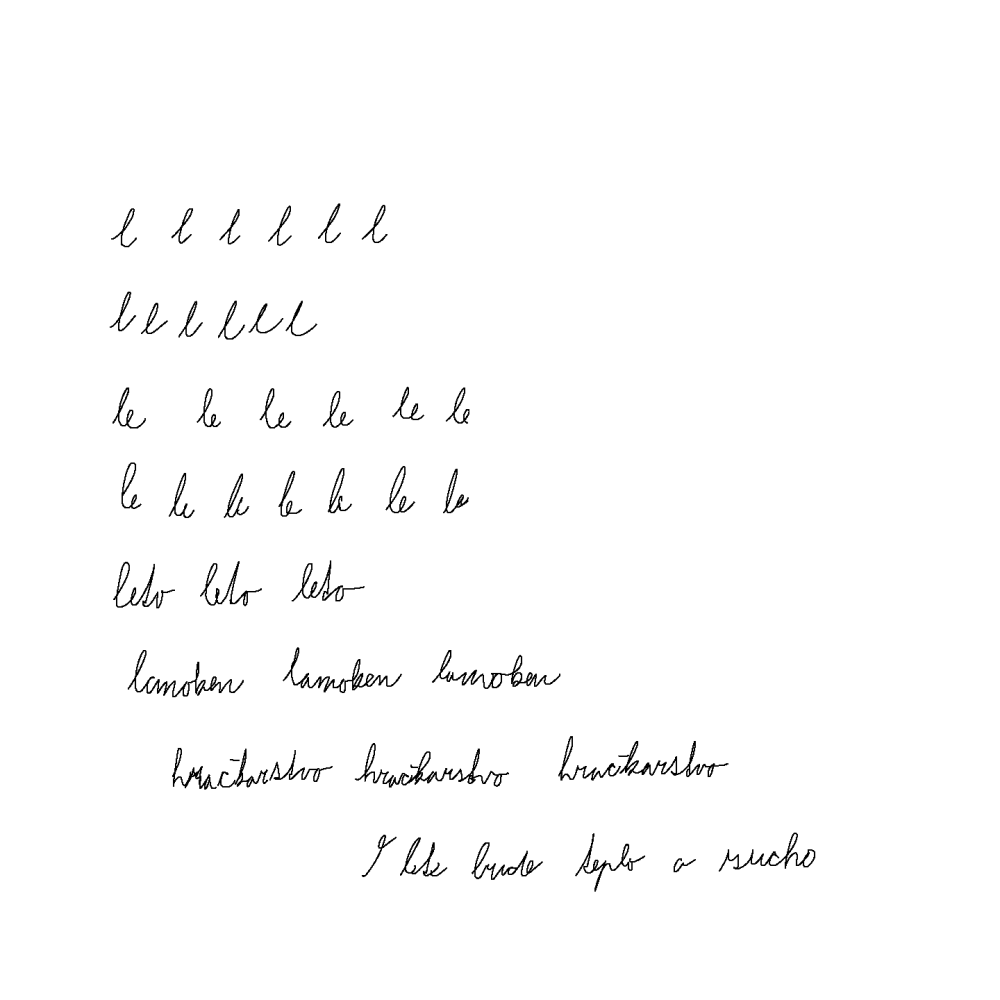 l l l l l l
l l l l l l
le le le le le le
le le le le le le le
leto leto leto
lamoken lamoken lamoken
hračkárstvo hračkarstvo hračkarstvo
V lete bude teplo a sucho